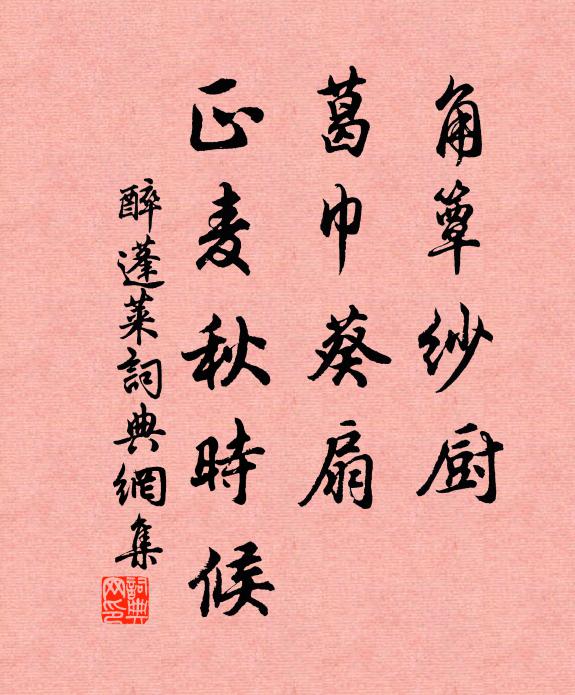 角簟纱厨
葛巾葵扇
正麦秋時候
醉蓬莱詞典網集
詞典
网印